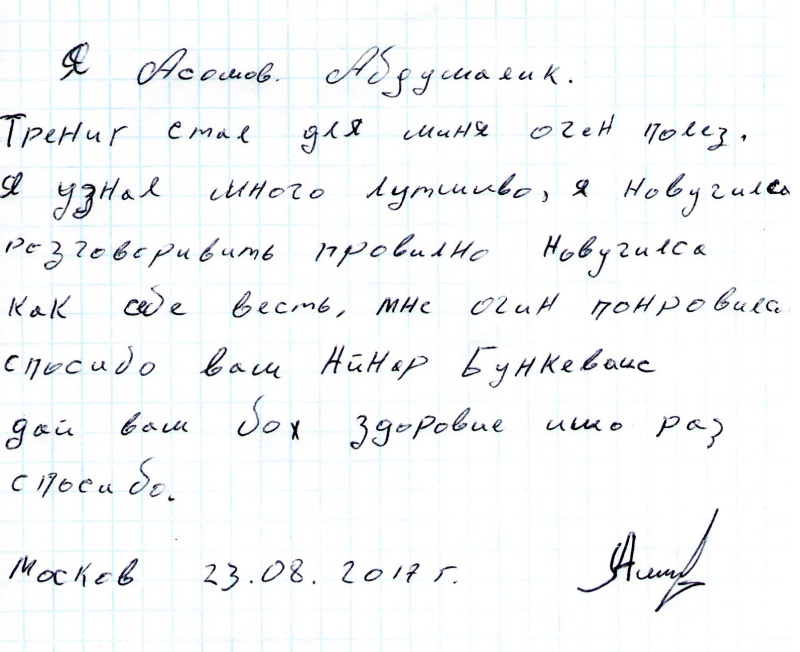 Я Асомов. Абдумалик.
Трениг стал для миня очен полез.
Я узнал много лутшиво, я новучилса
розговоривить провилно новучилса
как себе весть, мне очин понровилса
спосибо вам Айнар Бункеванс
дай вам бох здоровие ишо раз
спосибо.
Москов 23.08.2017 г.